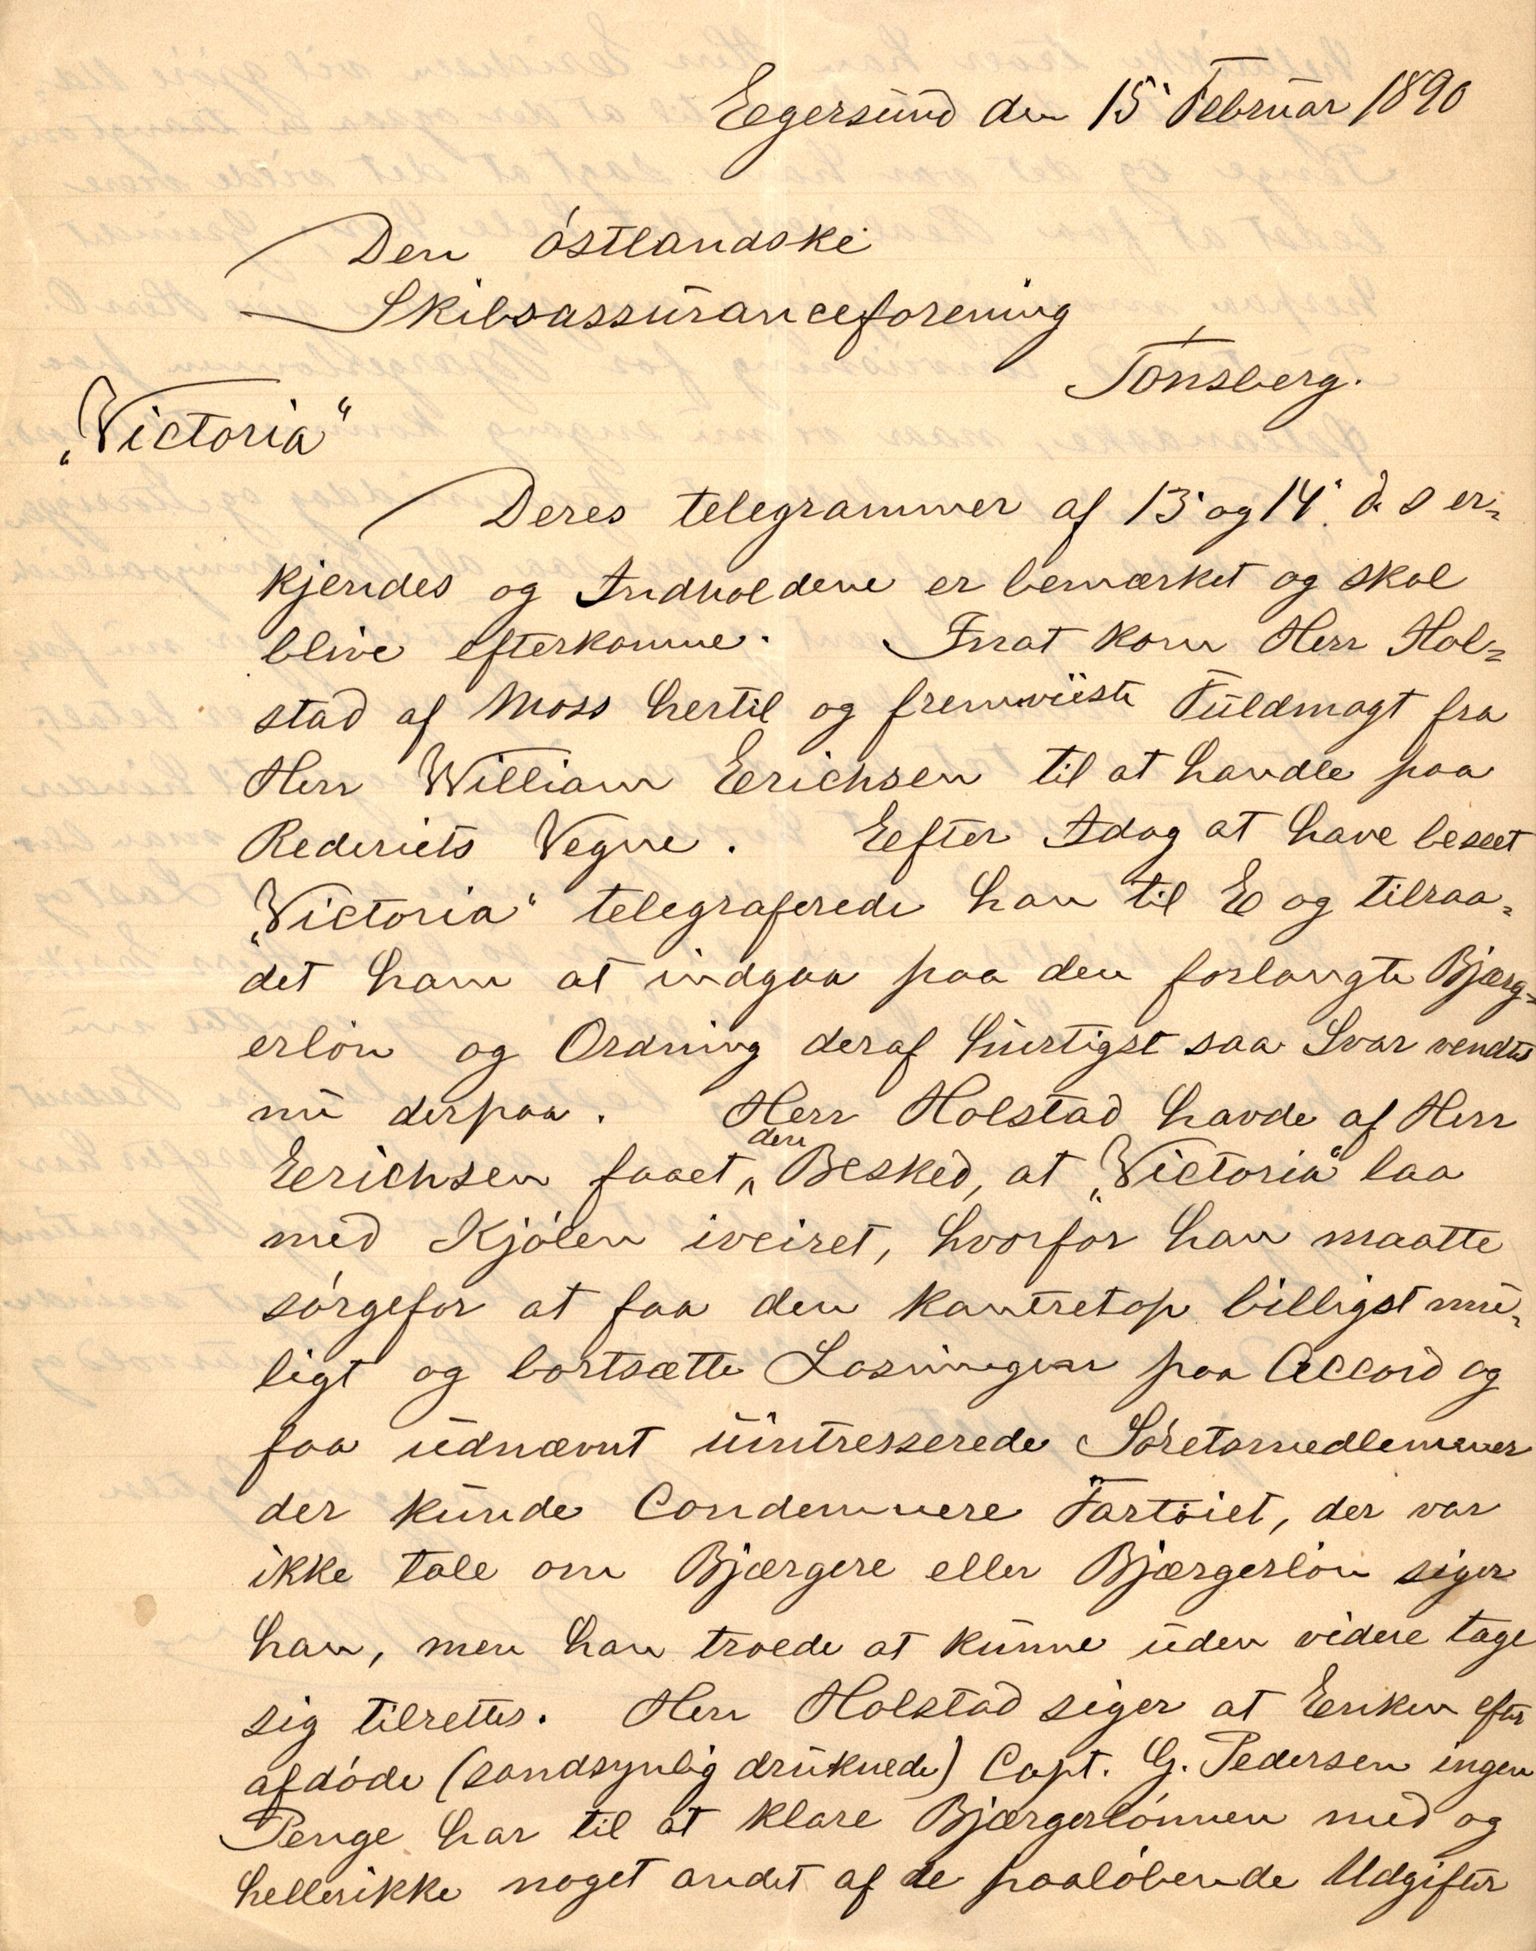 Egersund den 15' Februar 1890
Den östlandske
Skibsassuranceforening
Tönsberg.
„Victoria"
Deres telegrammer af 13' og 14'. d. s er-
kjendes og Indholdene er bemærket og skal
blive efterkomne. Inat kom Herr Hol-
stad af Moss hertil og fremviiste Fuldmagt fra
Herr William Eerichsen til at handle paa
Rederiets Vegne. Eefter Idag at have beseet
„Victoria" telegraferede han til E og tilraa-
det ham at indgaa paa den forlangte Bjærg-
erlön og Ordning deraf hurtigst saa Svar ventes
nu derpaa. Herr Holstad havde af Herr
Eerichsen faaet den Besked, at „Victoria" laa
med Kjölen iveiret, hvorfor han maatte
sörgefor at faa den kantretop billigst mu-
ligt og bortsætte Losningen paa Accord og
faa udnævnt uintresserede Söretsmedlemmer
der kunde Condemnere Fartöiet, der var
ikke tale om Bjærgere eller Bjærgerlön siger
han, men han troede at kunne uden videre tage
sig tilrettes. Herr Holstad siger at Enken efter
afdöde (sandsynlig druknede) Capt. G. Pedersen ingen
Penge har til at klare Bjærgerlönnen med og
hellerikke noget andet af de paalöbende Udgifter